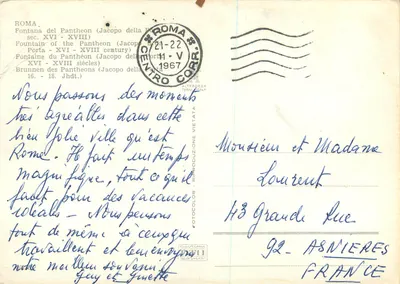 ROMA
Fontana del Pantheon (Jacopo della
sec. XVI - XVIII)
Fountain of the Pantheon (Jacopo
Porta - XVI - XVIII century)
Fontaine du Panthéon (Jacopo della
XVI - XVIII siècles)
Brunnen des Pantheons (Jacopo della
16. - 18. Jhdt.)
ROMA
21-22
11-V
1967
CENTRO CORR.
Nous passons des moments
très agréables dans cette
bien jolie ville qu'est
Rome. Il fait un temps
magnifique, tout ce qu'il
faut pour des vacances
idéales - Nous pensons
tout de même à ceux qui
travaillent et leur envoyons
notre meilleur souvenir
Guy et Ginette
RIPRODUZIONE VIETATA
Monsieur et Madame
Laurent
43 Grande Rue
92 - ASNIERES
FRANCE